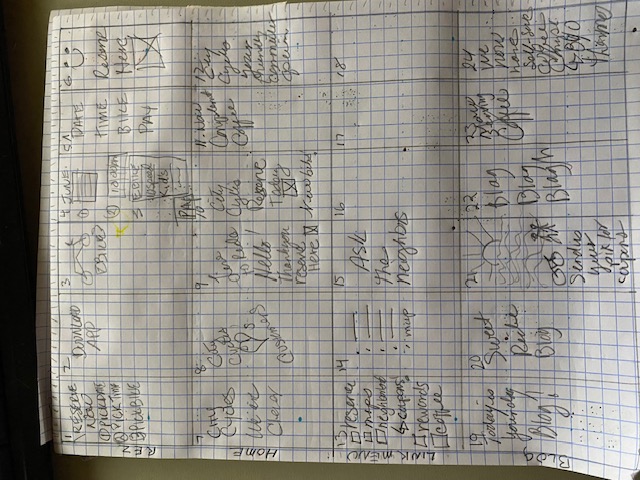 REZ
1
RESERVE
NOW
① PICK DATE
② PICK TIME
③ PICK BIKE
2
DOWNLOAD
APP
3
EBIKE
4
JUNE
①
②
10:00am
3
EBIKE
10 speed
Kid's
PAY
5
DATE
TIME
BIKE
PAY
6
Reserve
Here
HOME
7
City
Cycles
We're
8
City
Cycles
Customers
9
to Ride
Hello!
Thank you
reserve
Here
10
City
Cycles
Reserve
Today
New
11. Now
Coffee
12
City
Cycles
your
friendly
commuter
LINK MENU
13
reserve
maps
neighbors
↳ coupons
rewards
coffee
14
map
15
ASK
The
neighbors
16
17
18
BLOG
19
Today is
your day
Blog!
20
Sweet
Ride
Blog
21
Send us
your
pix for
coupons
22
Blag
Blag
Blagh
23
Now
Serving
Coffee
24
We
now
have
Self-Serve
Coffee
↳ BYO
Thermos